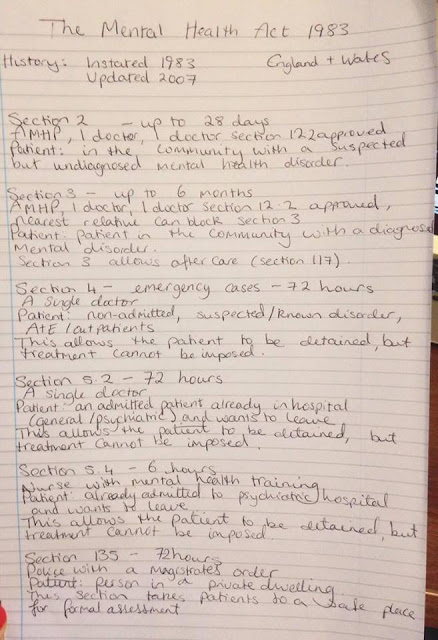 The Mental Health Act 1983
History: Instated 1983 England + Wales
Updated 2007
Section 2 - up to 28 days
AMHP, 1 doctor, 1 doctor section 12.2 approved
Patient: in the community with a suspected
but undiagnosed mental health disorder.
Section 3 - up to 6 months
AMHP, 1 doctor, 1 doctor section 12.2 approved,
nearest relative can block section 3
Patient: patient in the community with a diagnosed
mental disorder.
Section 3 allows after care (section 117).
Section 4 - emergency cases - 72 hours
A single doctor
Patient: non-admitted, suspected/known disorder,
A+E/outpatients
This allows the patient to be detained, but
treatment cannot be imposed.
Section 5.2 - 72 hours
A single doctor
Patient: an admitted patient already in hospital
(general/psychiatric) and wants to leave
This allows the patient to be detained, but
treatment cannot be imposed.
Section 5.4 - 6 hours
Nurse with mental health training
Patient: already admitted to psychiatric hospital
and wants to leave
This allows the patient to be detained, but
treatment cannot be imposed.
Section 135 - 72 hours
Police with a magistrates order
Patient: person in a private dwelling
This section takes patients to a safe place
for formal assessment